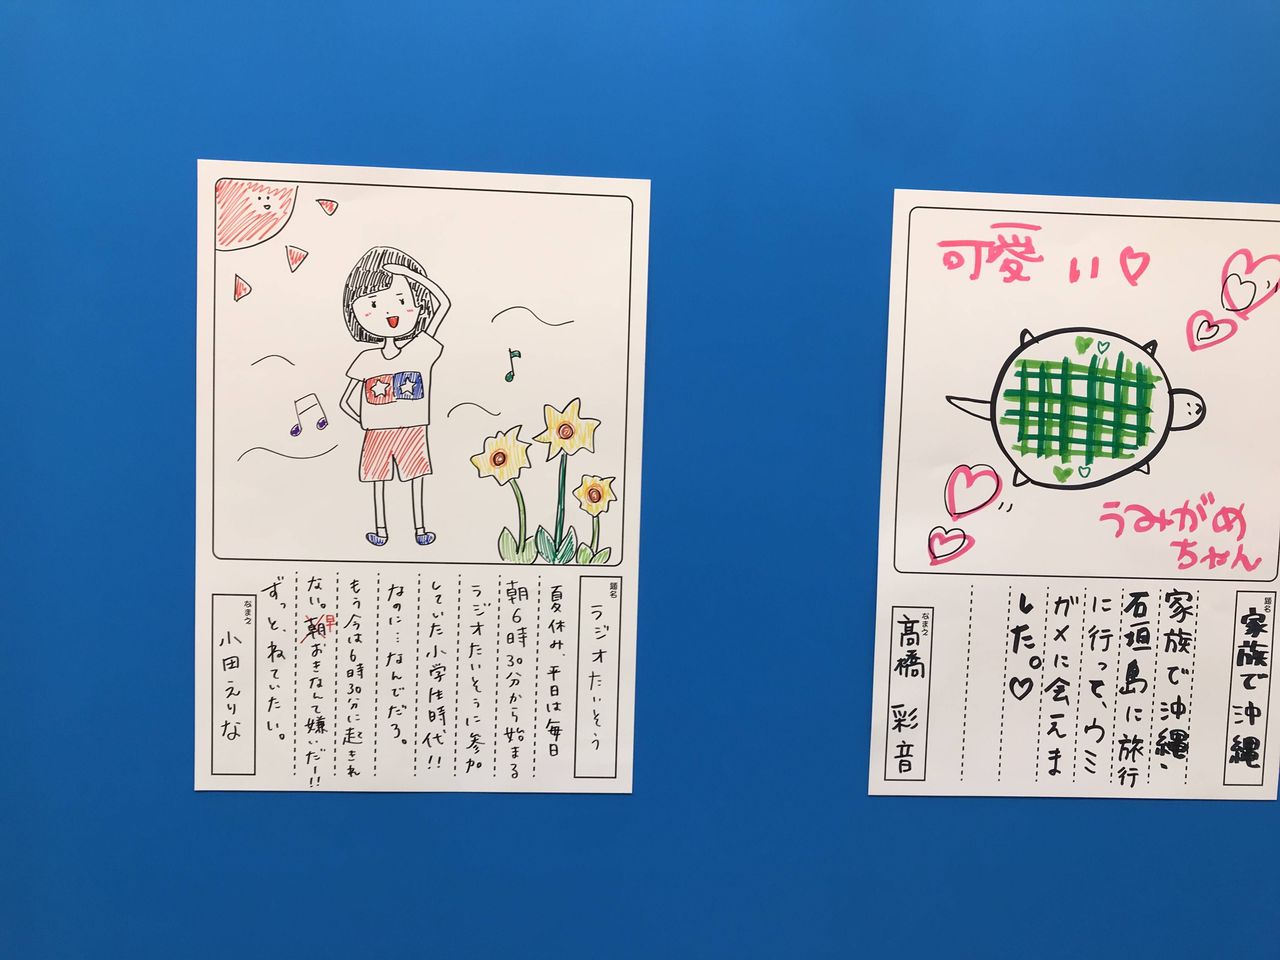 題名
ラジオたいそう
夏休み、平日は毎日
朝6時30分から始まる
ラジオたいそうに参加
していた小学生時代!!
なのに…なんでだろ。
もう今は6時30分に起きれ
ない。早おきなんて嫌いだー!!
ずっと、ねていたい。
なまえ
小田えりな
可愛い♡
うみがめ
ちゃん
題名
家族で沖縄
家族で沖縄、
石垣島に旅行
に行って、ウミ
ガメに会えま
した。♡
なまえ
髙橋 彩音